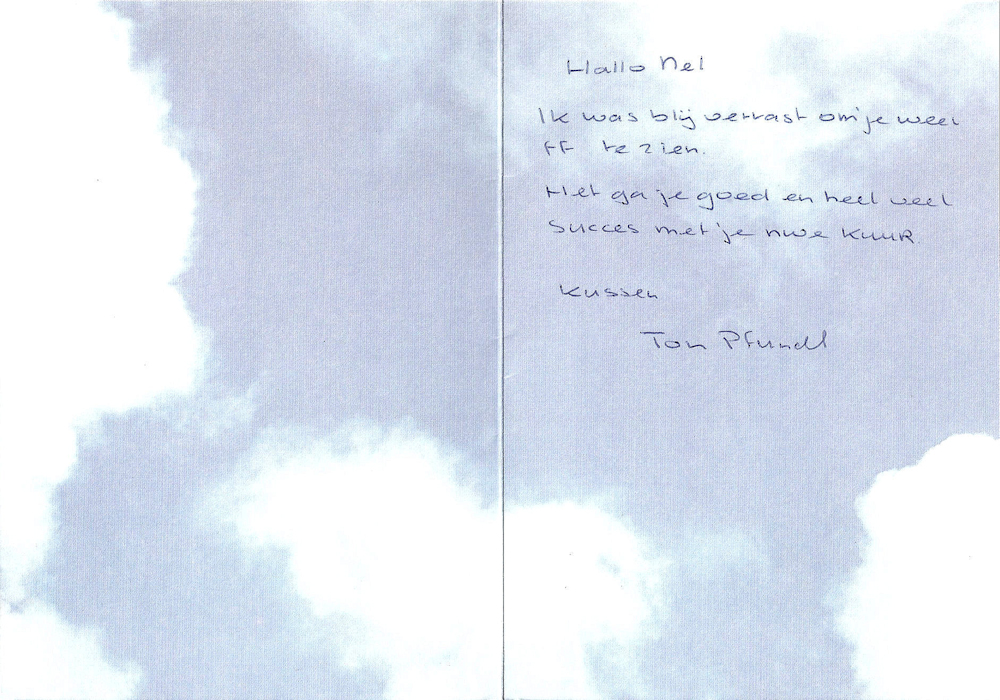 Hallo Nel
Ik was blij verrast om je weer
ff te zien.
Het ga je goed en heel veel
Succes met je nwe kuur.
Kussen
Ton Pfundl